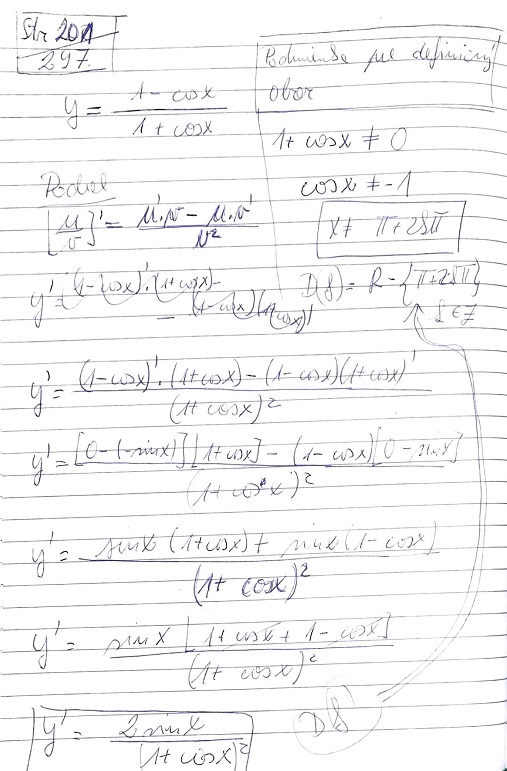 Str 201
297.
y = 1 - cosx / 1 + cosx
Podmienka pre definičný
obor
1 + cosx ≠ 0
cosx ≠ -1
x ≠ π + 2kπ
D(f) = R - {π + 2kπ}
k ∈ Z
Podiel
[u/v]' = u'.v - u.v' / v²
y' = (1 - cosx)'.(1 + cosx) -
- (1 - cosx)(1 + cosx)'
y' = (1 - cosx)'.(1 + cosx) - (1 - cosx)(1 + cosx)' / (1 + cosx)²
y' = [0 - (-sinx)][1 + cosx] - (1 - cosx)[0 - sinx] / (1 + cosx)²
y' = sinx (1 + cosx) + sinx (1 - cosx) / (1 + cosx)²
y' = sinx [1 + cosx + 1 - cosx] / (1 + cosx)²
y' = 2 sinx / (1 + cosx)²
Df